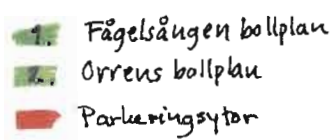 1. Fågelsången bollplan
2. Orrens bollplan
Parkeringsytor